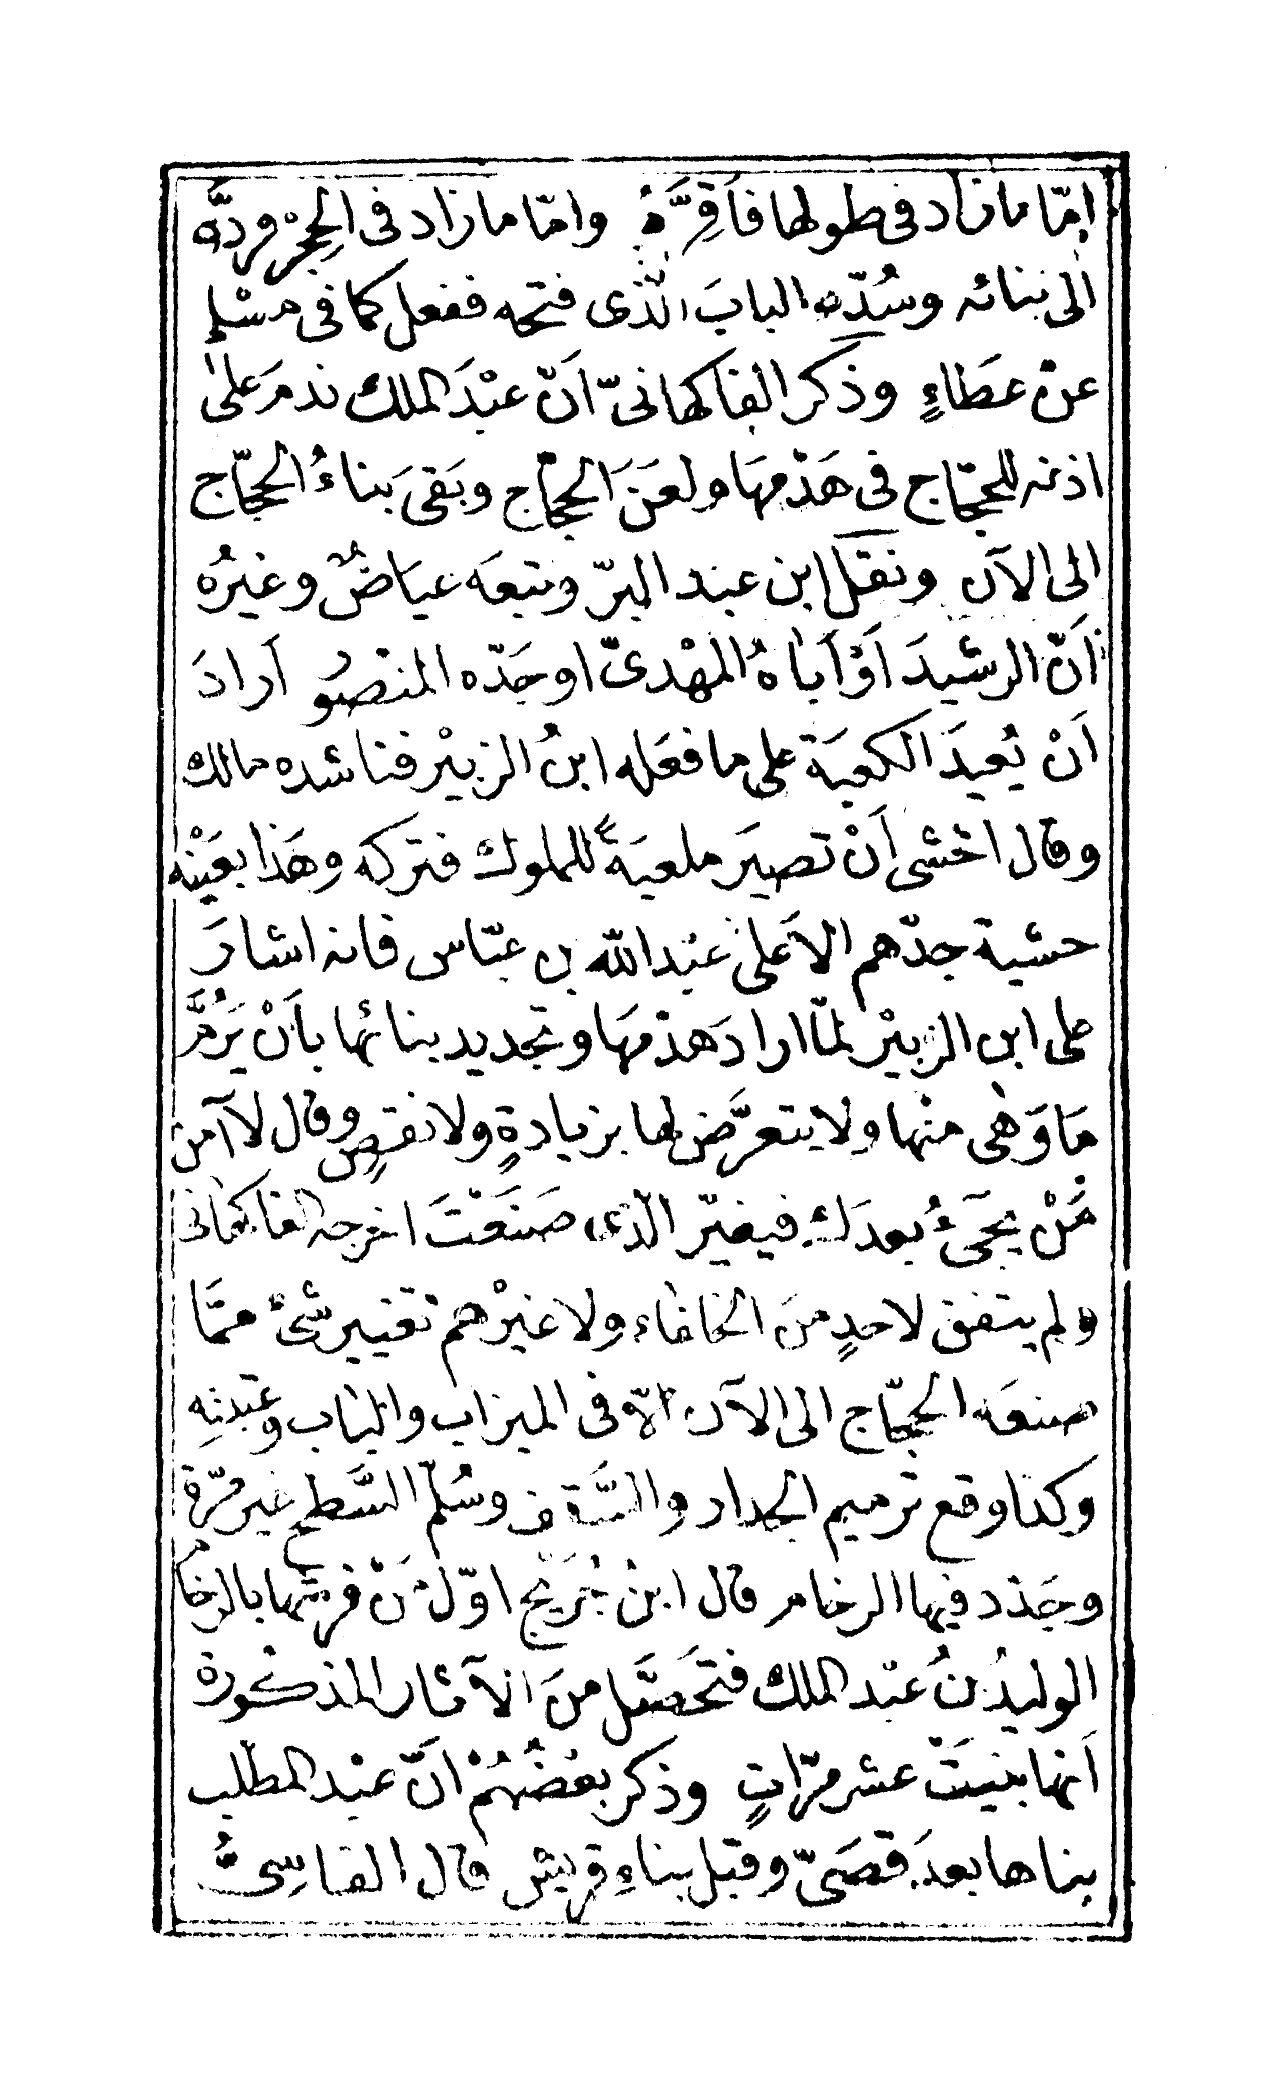 امّا ما زاد فى طولها فأقِرَّهُ وامّا ما زاد فى الحِجْر فردّه
الى بنائه وسُدّه البابَ الّذى فتحه ففعل كما فى مسْلم
عنْ عطَاءٍ وذكر الفاكهانىّ انّ عبْدَ الملك ندمَ على
اذنه للحجّاج فى هَدْمهَا ولعَنَ الحجّاج وبَقى بَناءُ الحجّاج
الى الآن ونقل ابن عبد البرّ وتبعَه عيَاضٌ وغيرُه
أنّ الرشيدَ أوْ أباهُ المهْدىّ اوجَدّه المنْصُو أرادَ
أنْ يُعيدَ الكعبَة على ما فعَله ابنُ الزبيْر فناشده مالك
وقال اخشى أنْ تصيَر ملعبَةً للملوك فتركه وهَذا بعَيْنه
خشية جدّهم الأعلى عبْد الله بن عبّاس فانه اشارَ
على ابن الزبيْر لمّا ارادَ هدْمهَا وتجديد بنائها بأنْ يَرُمَّ
مَا وَهى منْها ولا يتعرَّض لها بزيادةٍ ولا نقصٍ وقال لا آمن
مَنْ يجَىءُ بعدَك فيغيّر الّذى صَنَعْتَ اخرجه الفاكهانى
ولم يتفق لاحدٍ منَ الخلفاء ولا غيْرهم تغيير شىْء ممّا
صنعَه الحجّاج الى الآن الّا فى الميزاب والباب وعتبتِه
وكذا وقع ترميم الجدار والسَّقف وسُلّم السَّطح غير مرّة
وجَدّد فيها الرخام قال ابنُ جُرَيْج اوّل مَنْ فرشها بالرخا
الوليدُ بنُ عبْد الملك فتحَصَّل منَ الآثار المذكورة
أنها بنيَتْ عشر مرّاتٍ وذكر بعْضُهُمْ انَّ عبْد المطلب
بناها بعدَ قصَىّ وقبْل بناءِ قريش قال الفاسِىُّ